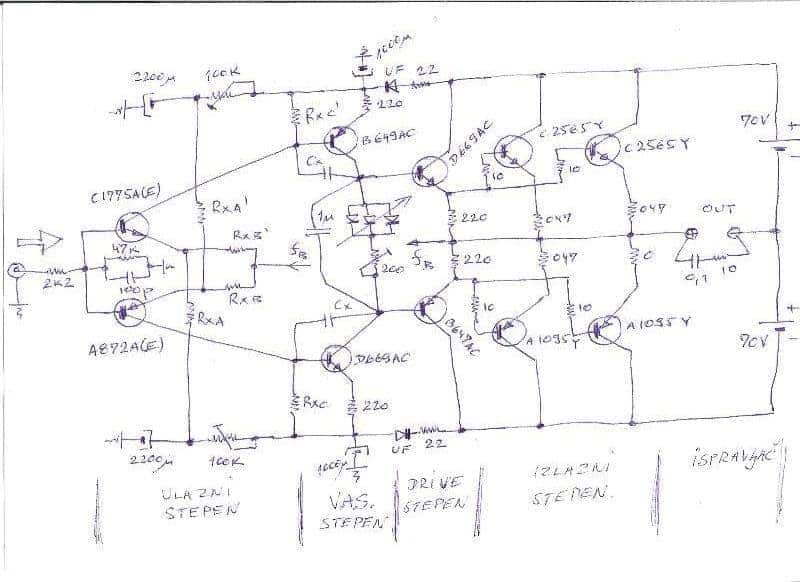 1000μ
2200μ
100K
UF 22
220
RxC'
B649AC
D669AC
C2565Y
C2565Y
70V
+
-
Cx
10
10
C1775A(E)
RxA'
1μ
220
047
047
OUT
47K
RxB'
fB
fB
220
047
0,1 10
2K2
100p
RxB
200
10
10
RxA
Cx
B649AC
A1095Y
A1095Y
+
70V
-
A872A(E)
D669AC
RxC
220
2200μ
100K
1000μ
UF 22
ULAZNI
STEPEN
VAS.
STEPEN
DRIVE
STEPEN
IZLAZNI
STEPEN.
ISPRAVLJAČ